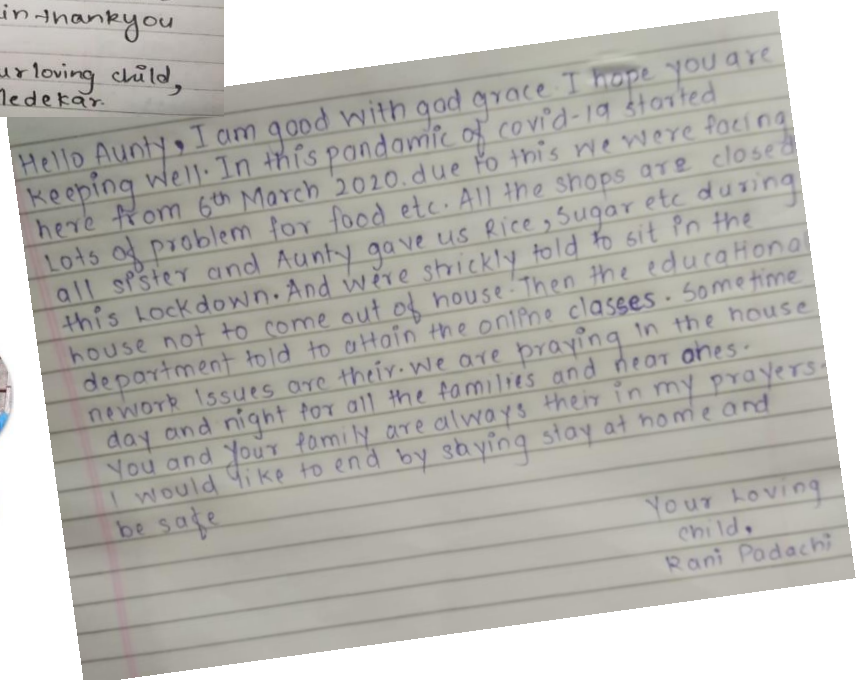 in thankyou
ur loving child,
Medekar.
Hello Aunty, I am good with god grace. I hope you are
keeping well. In this pandamic of covid-19 started
here from 6th March 2020. due to this we were facing
Lots of problem for food etc. All the shops are closed
all sister and Aunty gave us Rice, Sugar etc during
this Lockdown. And were strickly told to sit in the
house not to come out of house. Then the educational
department told to attain the online classes. Sometime
nework Issues are their. We are praying in the house
day and night for all the families and near ones.
You and your family are always their in my prayers.
I would like to end by saying stay at home and
be safe
Your Loving
child,
Rani Padachi